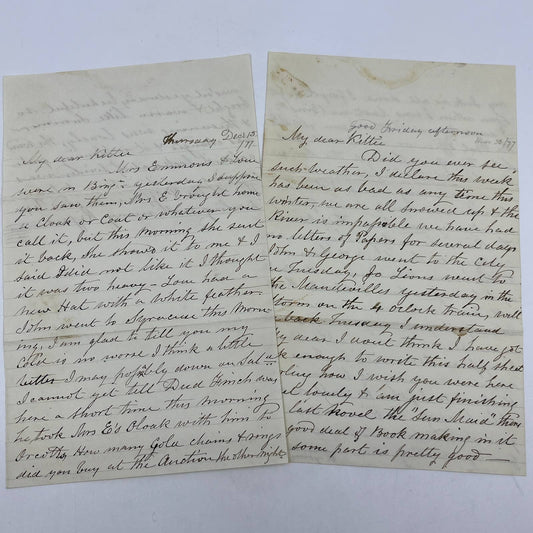 Thursday Dec 13
/77
My dear Kittie
Mrs Emmons & Loue
were in Bing. yesterday I suppose
you saw them, Mrs E brought home
a Cloak or Coat or whatever you
call it, but this Morning she sent
it back, she showed it to me & I
said I did not like it I thought
it was two heavy - Loue had a
new Hat with a White feather.
John went to Syracuse this Morn-
ing, I am glad to tell you my
Cold is no worse I think a little
better I may possibly down on Sat
I cannot yet tell Dud Finch was
here a short time this Morning
he took Mrs E's Cloak with him to
How many Gold chains & rings
did you buy at the Auction the other night
Good Friday afternoon
Mar 30/77
My dear Kittie
Did you ever see
such weather, I declare this week
has been as bad as any time this
winter, we are all snowed up & the
River is impassable we have had
no letters of Papers for several days
John & George went to the City
on Tuesday, Jo Lions went to
the Mandevilles yesterday in the
storm on the 4 oclock train, will
back Tuesday I understand
My dear I dont think I have got
enough to write this half sheet
how I wish you were here
lonely & am just finishing
last Novel the "Sun Maid" there
good deal of Book making in it
some part is pretty good